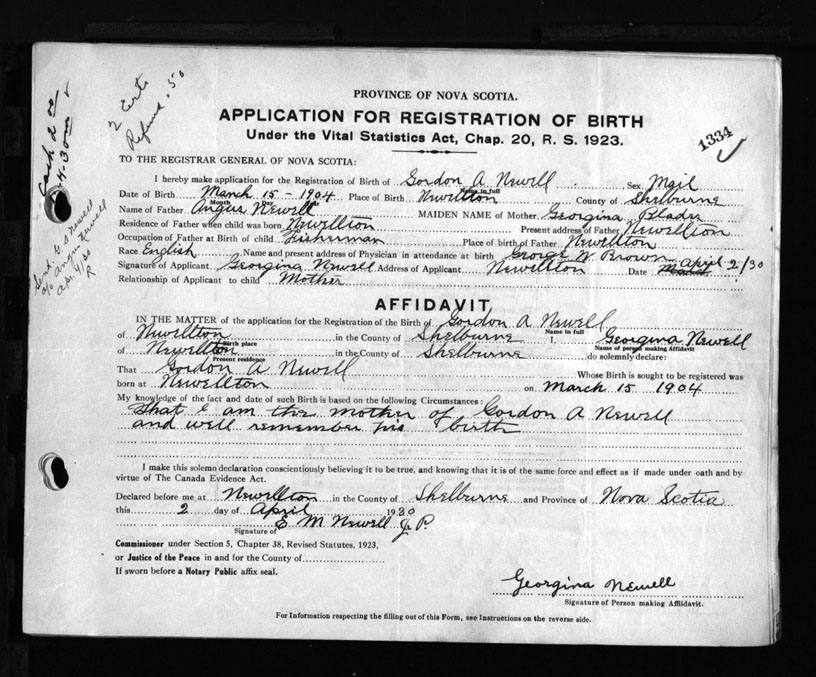 Cash 2 00
4.30
2 Certs.
Refund .50
Send
c/o Angus Newell
Apr. 4/30
R
PROVINCE OF NOVA SCOTIA.
1334
APPLICATION FOR REGISTRATION OF BIRTH
Under the Vital Statistics Act, Chap. 20, R. S. 1923.
TO THE REGISTRAR GENERAL OF NOVA SCOTIA:
I hereby make application for the Registration of Birth of Gordon A Newell Sex Mail
Name in full
Date of Birth March 15 - 1904 Place of Birth Newellton County of Shelburne
Month Day
Name of Father Angus Newell MAIDEN NAME of Mother Georgina Blades
Residence of Father when child was born Newellton Present address of Father Newellton
Occupation of Father at Birth of child Fisherman Place of birth of Father Newellton
Race English Name and present address of Physician in attendance at birth George W Brown
Signature of Applicant Georgina Newell Address of Applicant Newellton Date April 2/30
Relationship of Applicant to child Mother
AFFIDAVIT
IN THE MATTER of the application for the Registration of the Birth of Gordon A Newell
Name in full
of Newellton in the County of Shelburne I, Georgina Newell
Birth place Name of person making Affidavit
of Newellton in the County of Shelburne do solemnly declare:
Present residence
That Gordon A Newell Whose Birth is sought to be registered was
born at Newellton on March 15 1904
My knowledge of the fact and date of such Birth is based on the following Circumstances:
that I am the mother of Gordon A Newell
and well remember his birth
I make this solemn declaration conscientiously believing it to be true, and knowing that it is of the same force and effect as if made under oath and by
virtue of The Canada Evidence Act.
Declared before me at Newellton in the County of Shelburne and Province of Nova Scotia
this 2 day of April 1930
E M Newell J. P.
Signature of
Commissioner under Section 5, Chapter 38, Revised Statutes, 1923,
or Justice of the Peace in and for the County of
If sworn before a Notary Public affix seal.
Georgina Newell
Signature of Person making Affidavit.
For Information respecting the filling out of this Form, see Instructions on the reverse side.